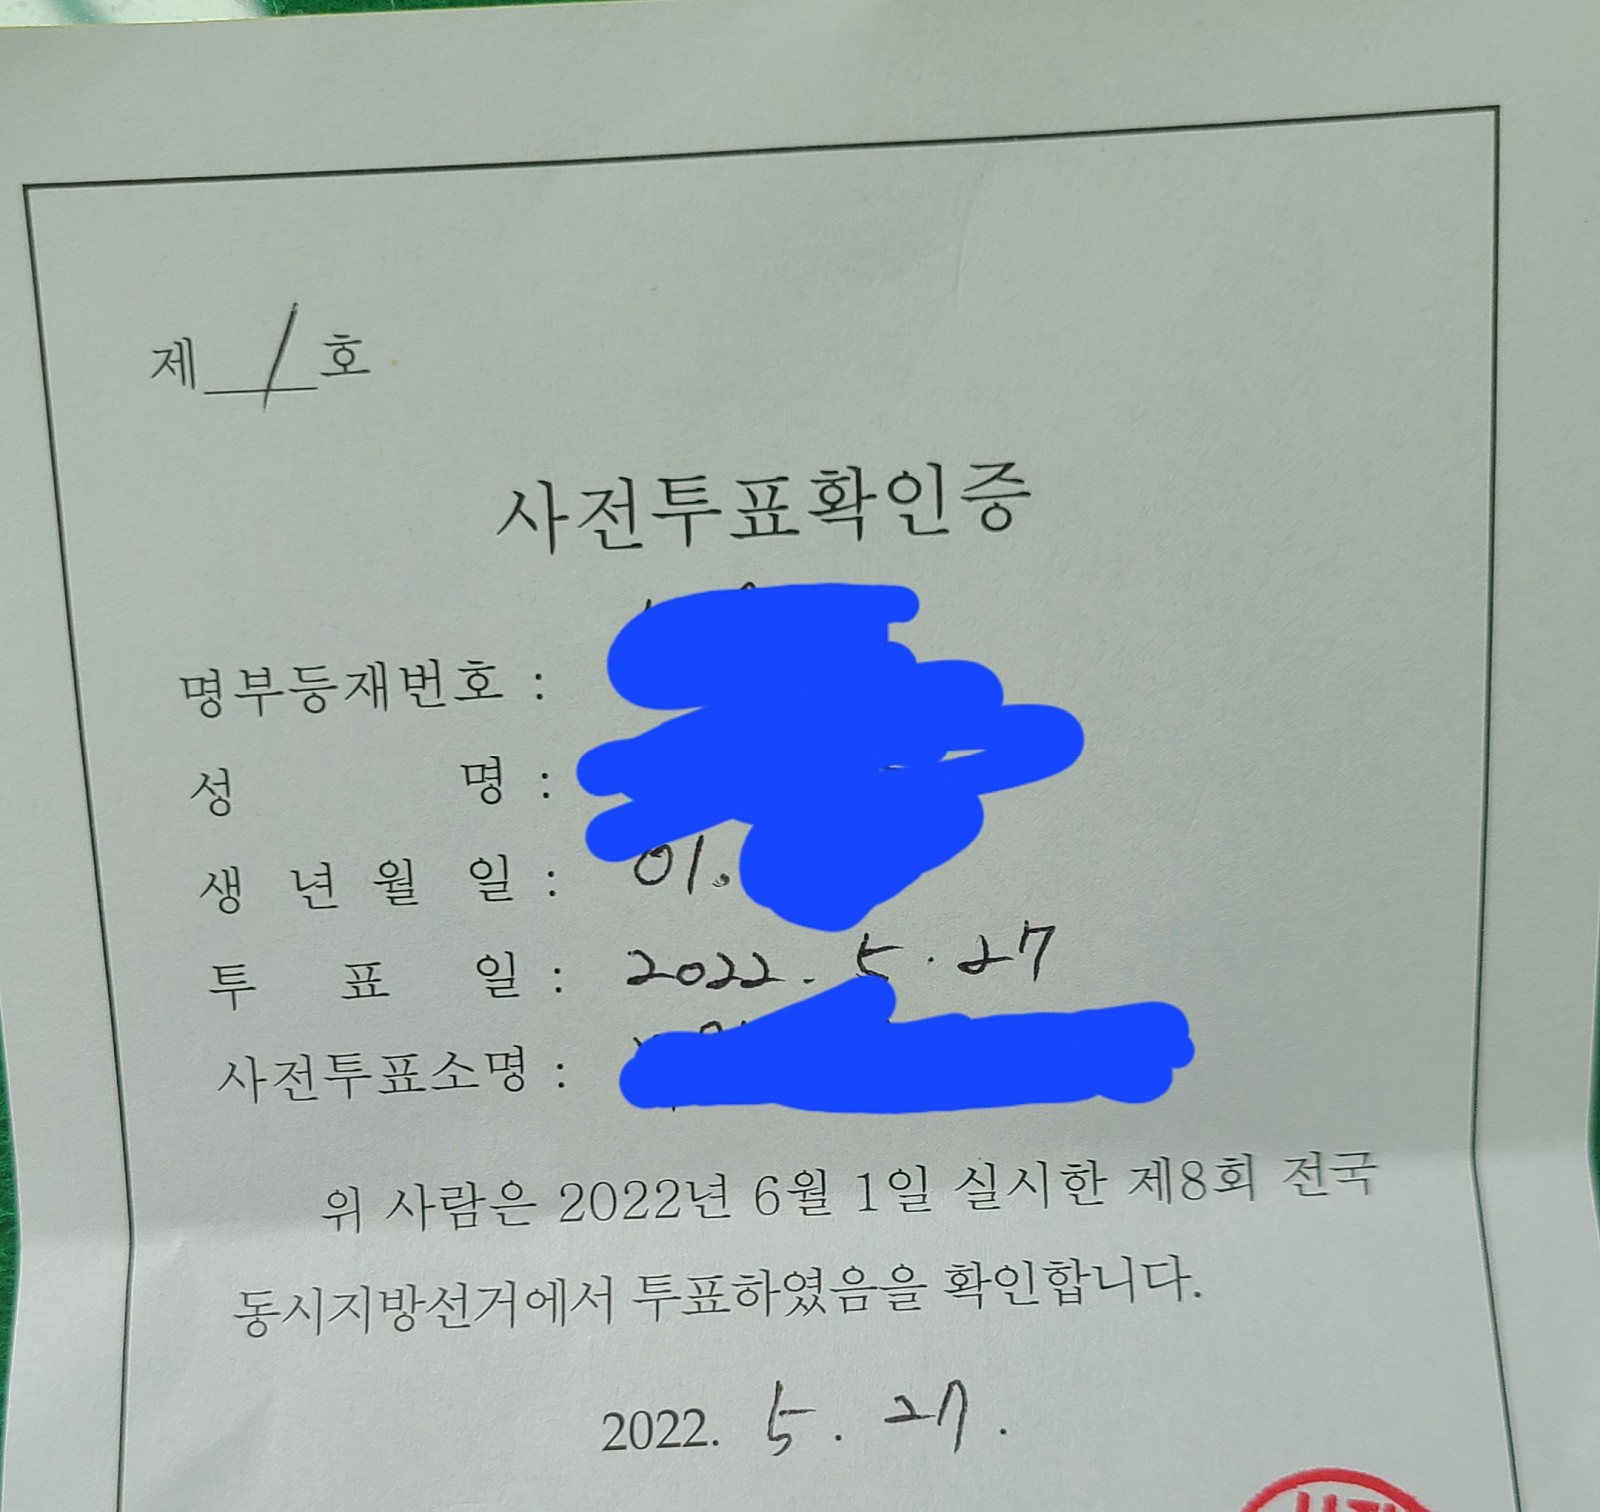 제 1 호
사전투표확인증
명부등재번호 :
성 명 :
생 년 월 일 : 01.
투 표 일 : 2022. 5. 27
사전투표소명 :
위 사람은 2022년 6월 1일 실시한 제8회 전국
동시지방선거에서 투표하였음을 확인합니다.
2022. 5. 27.